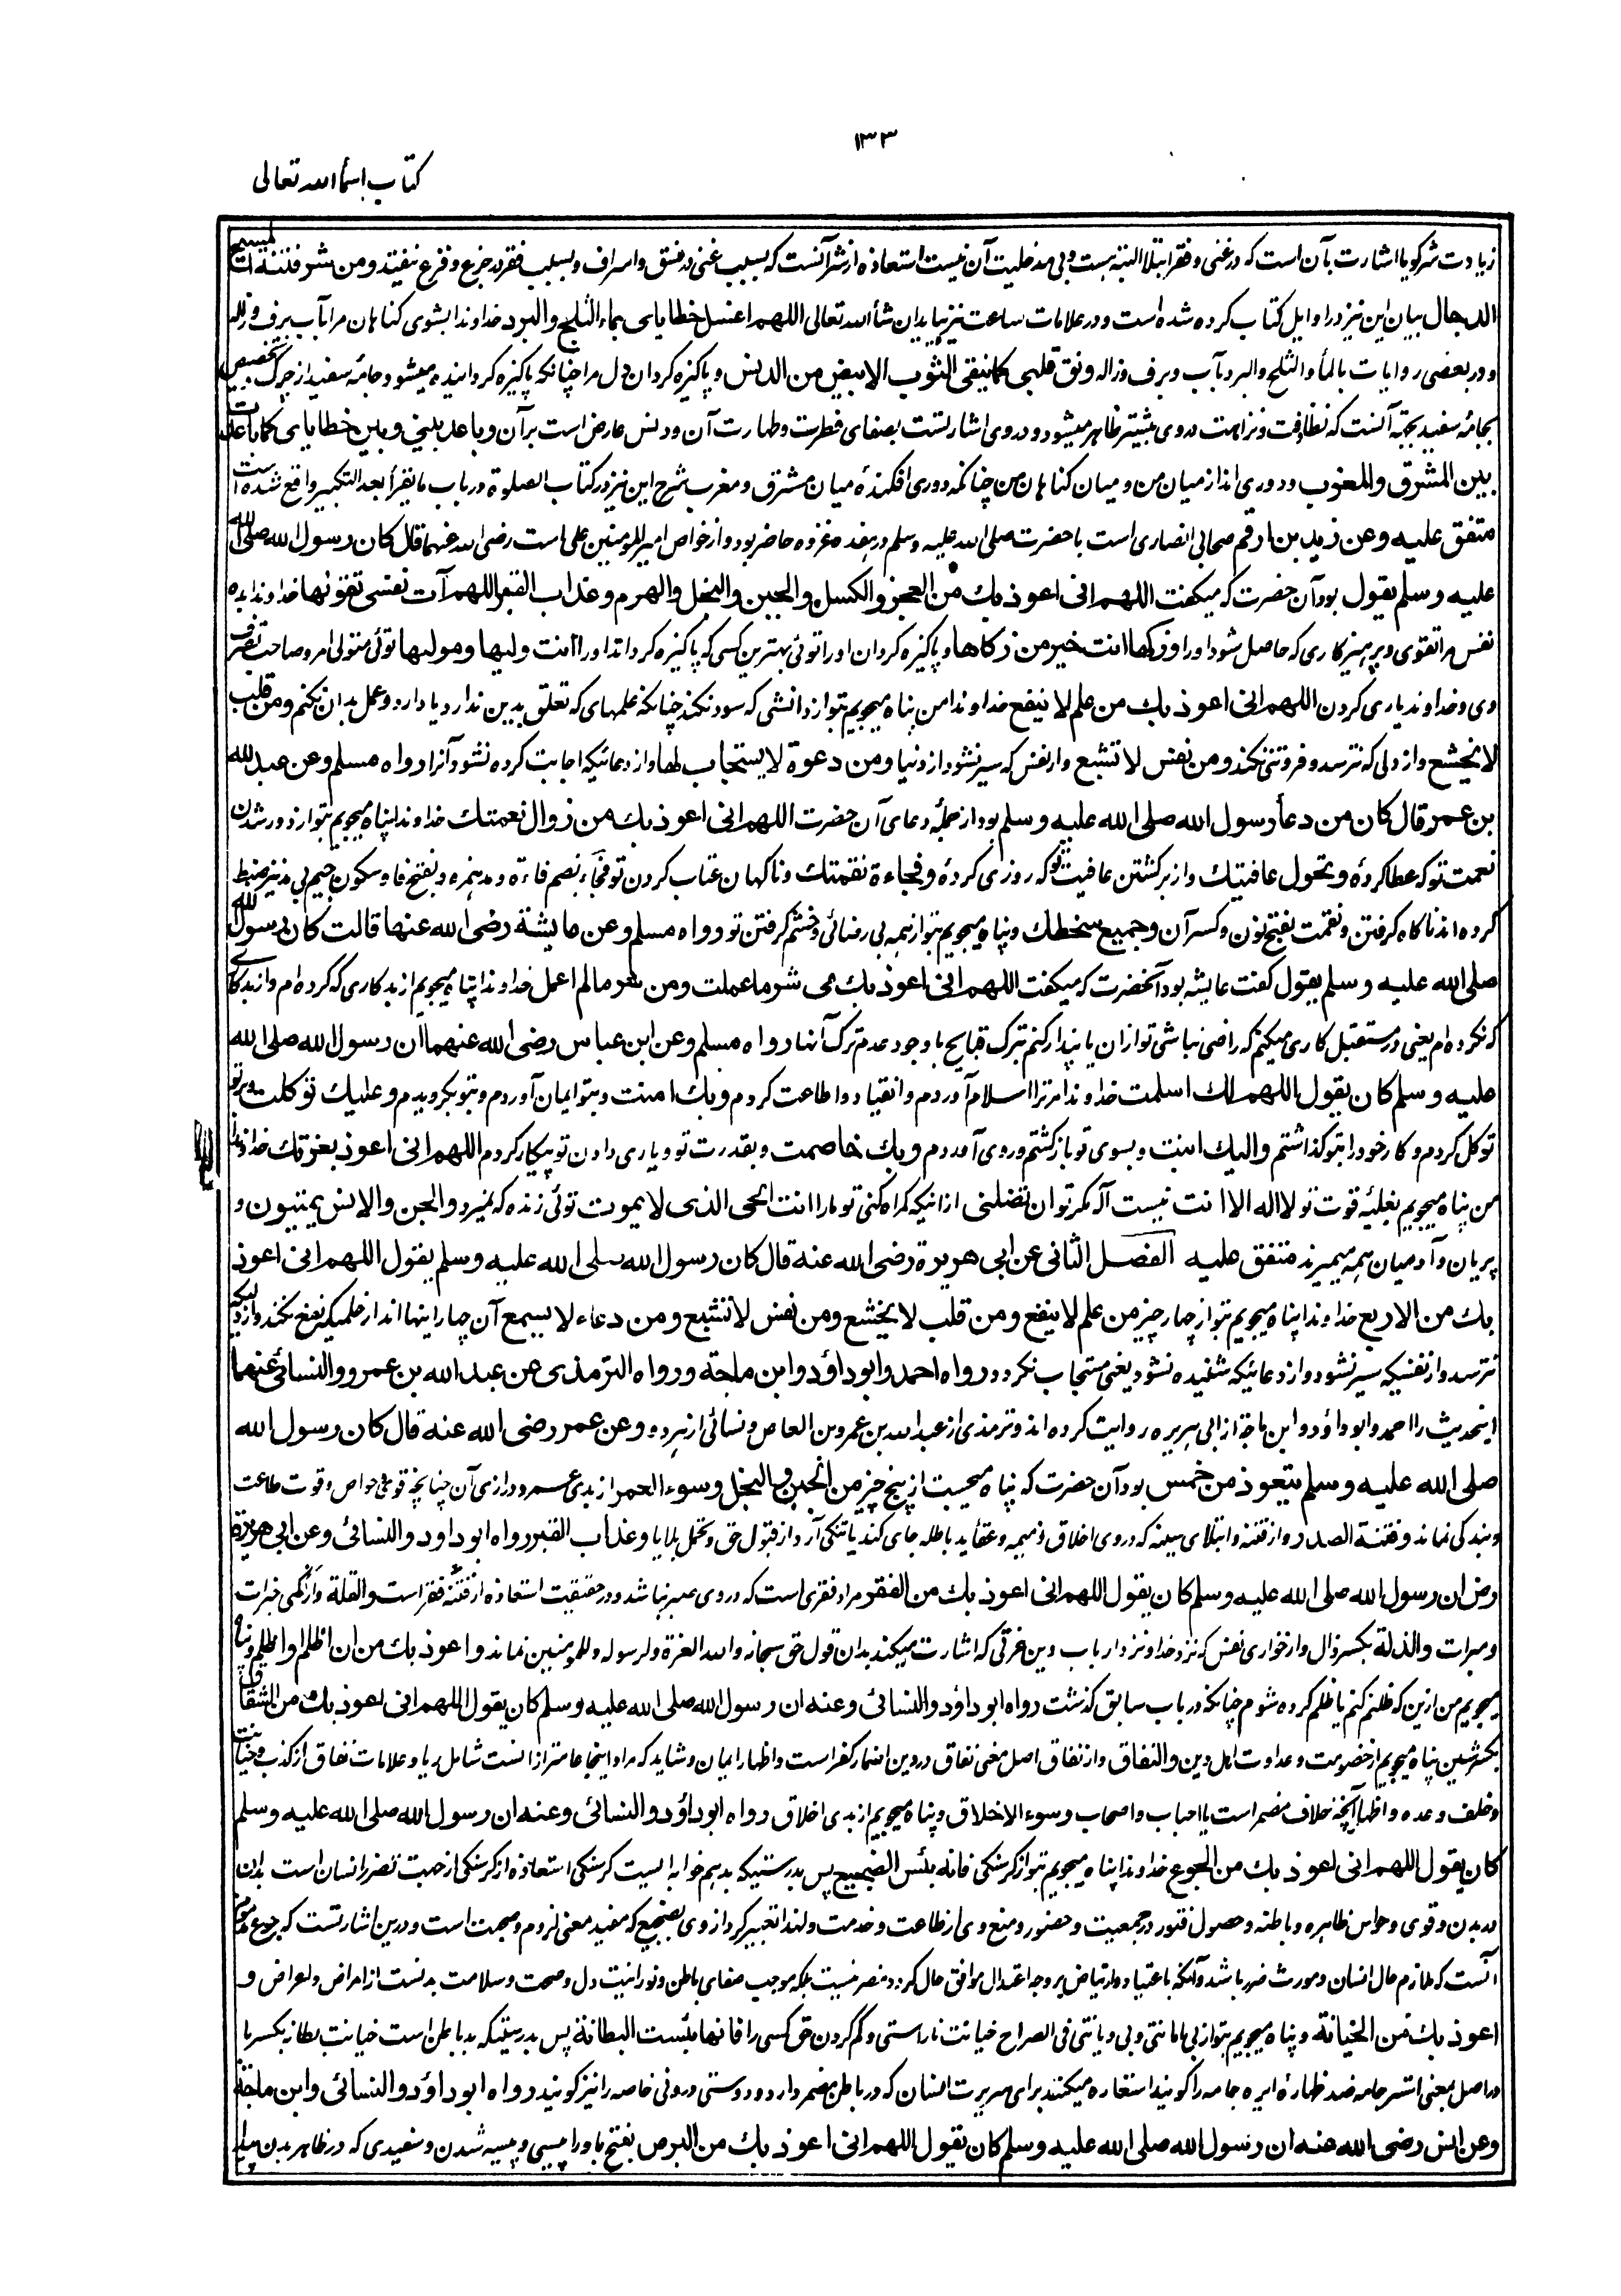 ۱۳۳
کتاب اسمأ الله تعالی
زیادت شر گویا اشارت بآن است که در غنی و فقر ابتلا البته هست و بی مدخلیت آن نیست استعاذه از شر آنست که بسبب غنی در فسق و اسراف و بسبب فقر در جزع و فزع نیفتد ومن شر فتنة المسیح
الدجال بیان این نیز در اوایل کتاب کرده شده است و در علامات ساعت نیز بیاید ان شأ الله تعالی اللهم اغسل خطایای بماء الثلج والبرد خداوندا بشوی گناهان مرا بآب برف و ژاله
و در بعضی روایات بالمأ والثلج والبرد بآب و برف و ژاله ونق قلبی کما ینقی الثوب الابیض من الدنس و پاکیزه گردان دل مرا چنانکه پاکیزه گردانیده میشود جامه سفید از چرک تخصیص
بجامه سفید بجهة آنست که نظافت و نزاهت در وی بیشتر ظاهر میشود و در وی اشارتست بصفای فطرت و طهارت آن و دنس عارض است بر آن وباعد بینی وبین خطایای کما باعدت
بین المشرق والمغرب و دوری انداز میان من و میان گناهان من چنانکه دوری افکندهٔ میان مشرق و مغرب شرح این نیز در کتاب الصلوة در باب ما یقرأ بعد التکبیر واقع شده است
متفق علیه وعن زید بن ارقم صحابی انصاری است با حضرت صلی الله علیه وسلم در هفده غزوه حاضر بود و از خواص امیر المومنین علی است رضی الله عنهما قال کان رسول الله صلی الله
علیه وسلم یقول بود آن حضرت که میگفت اللهم انی اعوذ بك من العجز والکسل والجبن والبخل والهرم وعذاب القبر اللهم آت نفسی تقوٰنها خداوندا بده
نفس مرا تقوی و پرهیزگاری که حاصل شود او را وزکها انت خیر من زکاها و پاکیزه گردان او را توئی بهترین کسی که پاکیزه گرداند او را انت ولیها ومولیها توئی متولی امر و صاحب تصرف
وی و خداوند یاری کردن اللهم انی اعوذ بك من علم لا ینفع خداوندا من پناه میجویم بتو از دانشی که سود نکند چنانکه علمهای که تعلق بدین ندارد یا دارد و عمل بدان نکنم ومن قلب
لا یخشع و از دلی که نترسد و فروتنی نکند ومن نفس لا تشبع و از نفس که سیر نشود از دنیا ومن دعوة لا یستجاب لها و از دعائیکه اجابت کرده نشود آنرا رواه مسلم وعن عبد الله
بن عمر قال کان من دعأ رسول الله صلی الله علیه وسلم بود از جمله دعای آن حضرت اللهم انی اعوذ بك من زوال نعمتك خداوندا پناه میجویم بتو از دور شدن
نعمت تو که عطا کردهٔ وتحول عافیتك و از برگشتن عافیت تو که روزی کردهٔ وفجاءة نقمتك و ناگهان عتاب کردن تو فجأة بضم فا و مد همزه و بفتح فا و سکون جیم بی مد نیز ضبط
کرده اند ناگاه گرفتن و نقمت بفتح نون و کسر آن وجمیع سخطك و پناه میجویم بتو از همه بی رضائی و خشم گرفتن تو رواه مسلم وعن عایشة رضی الله عنها قالت کان رسول الله
صلی الله علیه وسلم یقول گفت عایشه بود آنحضرت که میگفت اللهم انی اعوذ بك من شر ما عملت ومن شر ما لم اعمل خداوندا پناه میجویم از بدکاری که کرده ام و از بدکاری
که نکرده ام یعنی در مستقبل کاری میکنم که راضی نباشی تو از ان یا پندار کنم بترک قبایح با وجود عدم ترک آنها رواه مسلم وعن ابن عباس رضی الله عنهما ان رسول الله صلی الله
علیه وسلم کان یقول اللهم لك اسلمت خداوندا مر ترا اسلام آوردم و انقیاد و اطاعت کردم وبك امنت و بتو ایمان آوردم و بتو گرویدم وعلیك توکلت و بر تو
توکل کردم و کار خود را بتو گذاشتم والیك انبت و بسوی تو بازگشتم و روی آوردم وبك خاصمت و بقدرت تو و یاری دادن تو پیکار کردم اللهم انی اعوذ بعزتك خداوندا
من پناه میجویم بغلبهٔ قوت تو لا اله الا انت نیست آله مگر تو ان تضلنی از اینکه گمراه کنی تو مارا انت الحی الذی لا یموت توئی زنده که نمیرد والجن والانس یموتون و
پریان و آدمیان همه میمیرند متفق علیه الفصل الثانی عن ابی هریرة رضی الله عنه قال کان رسول الله صلی الله علیه وسلم یقول اللهم انی اعوذ
بك من الاربع خداوندا پناه میجویم بتو از چهار چیز من علم لا ینفع ومن قلب لا یخشع ومن نفس لا تشبع ومن دعاء لا یسمع آن چهار اینها اند از علمیکه نفع نکند و از دلیکه
نترسد و از نفسیکه سیر نشود و از دعائیکه شنیده نشود یعنی مستجاب نگردد رواه احمد وابو داؤد وابن ماجة ورواه الترمذی عن عبد الله بن عمرو والنسائی عنهما
اینحدیث را احمد و ابو داؤد و ابن ماجة از ابی هریره روایت کرده اند و ترمذی از عبد الله بن عمرو بن العاص و نسائی از هر دو وعن عمر رضی الله عنه قال کان رسول الله
صلی الله علیه وسلم یتعوذ من خمس بود آن حضرت که پناه میجست از پنج چیز من الجبن والبخل وسوء العمر از بدی عمر و درازی آن چنانچه قوی و حواص و قوت طاعت
و بندگی نماند وفتنة الصدر و از فتنه و ابتلای سینه که در وی اخلاق ذمیمه و عقاید باطله جای کند یا تنگی آرد از قبول حق و تحمل بلایا وعذاب القبر رواه ابو داود والنسائی وعن ابی هریرة
رض ان رسول الله صلی الله علیه وسلم کان یقول اللهم انی اعوذ بك من الفقر مراد فقری است که در وی صبر نباشد و در حقیقت استعاذه از فتنهٔ فقر است والقلة و از کمی خیرات
و مبرات والذلة بکسر ذال و از خواری نفس که نزد خدا و نزد ارباب دین عزتی که اشارت میکند بدان قول حق سبحانه و لله العزة ولرسوله وللمومنین نماند واعوذ بك من ان اظلم او اظلم و پناه
میجویم من ازین که ظلم کنم یا ظلم کرده شوم چنانکه در باب سابق گذشت رواه ابو داؤد والنسائی وعنه ان رسول الله صلی الله علیه وسلم کان یقول اللهم انی اعوذ بك من الشقاق
بکسر شین پناه میجویم از خصومت و عداوت اهل دین والنفاق و از نفاق اصل معنی نفاق در دین اضمار کفر است و اظهار ایمان و شاید که مراد اینجا عامتر ازانست شامل ریا و علامات نفاق از کذب و خیانت
و خلف وعده و اظهار آنچه خلاف مضمر است با احباب و اصحاب وسوء الاخلاق و پناه میجویم از بدی اخلاق رواه ابو داؤد والنسائی وعنه ان رسول الله صلی الله علیه وسلم
کان یقول اللهم انی اعوذ بك من الجوع خداوندا پناه میجویم بتو از گرسنگی فانه بئس الضجیع پس بدرستیکه بد هم خوابه ایست گرسنگی استعاذه از گرسنگی از جهت تضرر انسان است بدان
در بدن و قوی و حواس ظاهره و باطنه و حصول فتور در جمعیت و حضور و منع وی از طاعت و خدمت و لهذا تعبیر کرد از وی بضجیع که مفید معنی لزوم و صحبت است و درین اشارتست که جوع مذموم
آنست که ملازم حال انسان و مورث ضرر باشد و آنکه باعتیاد و ارتیاض بر وجه اعتدال موافق حال گردد مضر نیست بلکه موجب صفای باطن و نورانیت دل و صحت و سلامت بدنست از امراض و اعراض و
اعوذ بك من الخیانة و پناه میجویم بتو از بی امانتی و بی دیانتی فی الصراح خیانت ناراستی و کم کردن حق کسی را فانها بئست البطانة پس بدرستیکه بد باطن است خیانت بطانه بکسر با
در اصل بمعنی استر جامه ضد ظهارهٔ ابره جامه را گویند استعاره میکنند برای سریرت انسان که در باطن مضمر دارد و دوستی درونی خاصه را نیز گویند رواه ابو داؤد والنسائی وابن ماجة
وعن انس رضی الله عنه ان رسول الله صلی الله علیه وسلم کان یقول اللهم انی اعوذ بك من البرص بفتح با و را پیسی و پیسه شدن و سفیدی که در ظاهر بدن پیدا